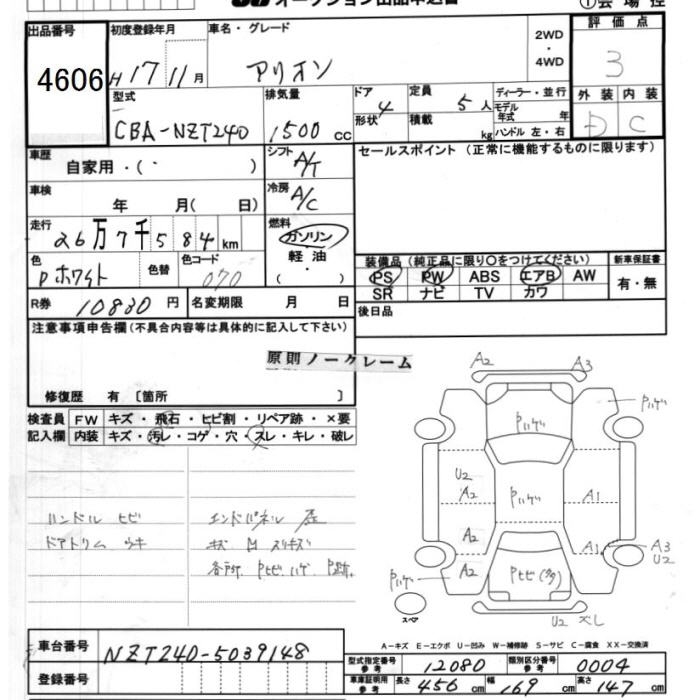 オークション出品申込書
①会場控
出品番号 4606
初度登録年月 H17 11月
車名・グレード アリオン
2WD・4WD
評価点 3
外装 D 内装 C
型式 CBA-NZT240
排気量 1500 cc
ドア形状 4
定員 5人
積載 kg
ディーラー・並行
モデル年式 年
ハンドル 左・右
車歴 自家用・( )
シフト A/T
セールスポイント(正常に機能するものに限ります)
車検 年 月( 日)
冷房 A/C
走行 26万7千584km
燃料 ガソリン 軽油 ・ ( )
色 Pホワイト 色替 色コード 070
装備品(純正品に限り○をつけてください)
PS PW ABS エアB AW
SR ナビ TV カワ
新車保証書 有・無
R券 10830円 名変期限 月 日
後日品
注意事項申告欄(不具合内容等は具体的に記入して下さい)
原則ノークレーム
修復歴 有 〔箇所 〕
検査員記入欄
FW キズ・飛石・ヒビ割・リペア跡・×要
内装 キズ・汚レ・コゲ・穴・スレ・キレ・破レ
ハンドル ヒビ
ドアトリム ウキ
エンドパネル
キズ M スリキズ
各所 Pヒビ ハゲ P跡
A2 A3
Pハゲ
Pハゲ
U2
A2
Pハゲ
A1
A2
A1
A3
U2
Pハゲ
A2
Pヒビ
スペア
U2
A-キズ E-エクボ U-凹み W-補修跡 S-サビ C-腐食 XX-交換済
車台番号 NZT240-5039148
登録番号
型式指定番号 参考 12080
類別区分番号 参考 0004
車庫証明用 参考 長さ 456 cm 幅 169 cm 高さ 147 cm